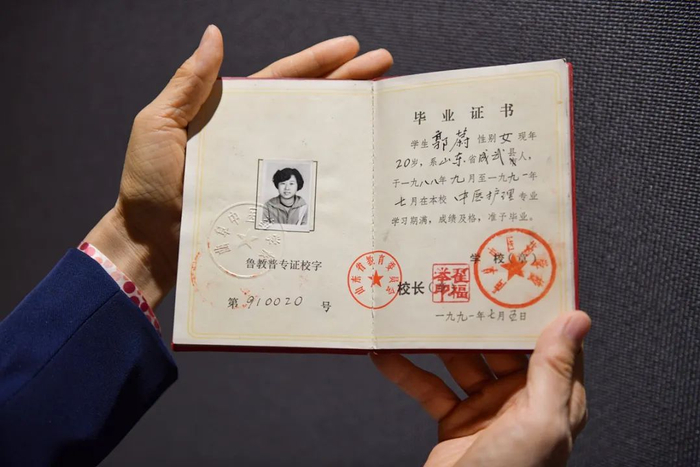 鲁教普专证校字
第 910020 号
山东省教育委员会
毕业证书
学生 郭蔚 性别 女 现年
20岁，系山东省成武县人，
于一九八八年九月至一九九一年
七月在本校 中医护理 专业
学习期满，成绩及格，准予毕业。
学校（章）
校长
一九九一年七月五日